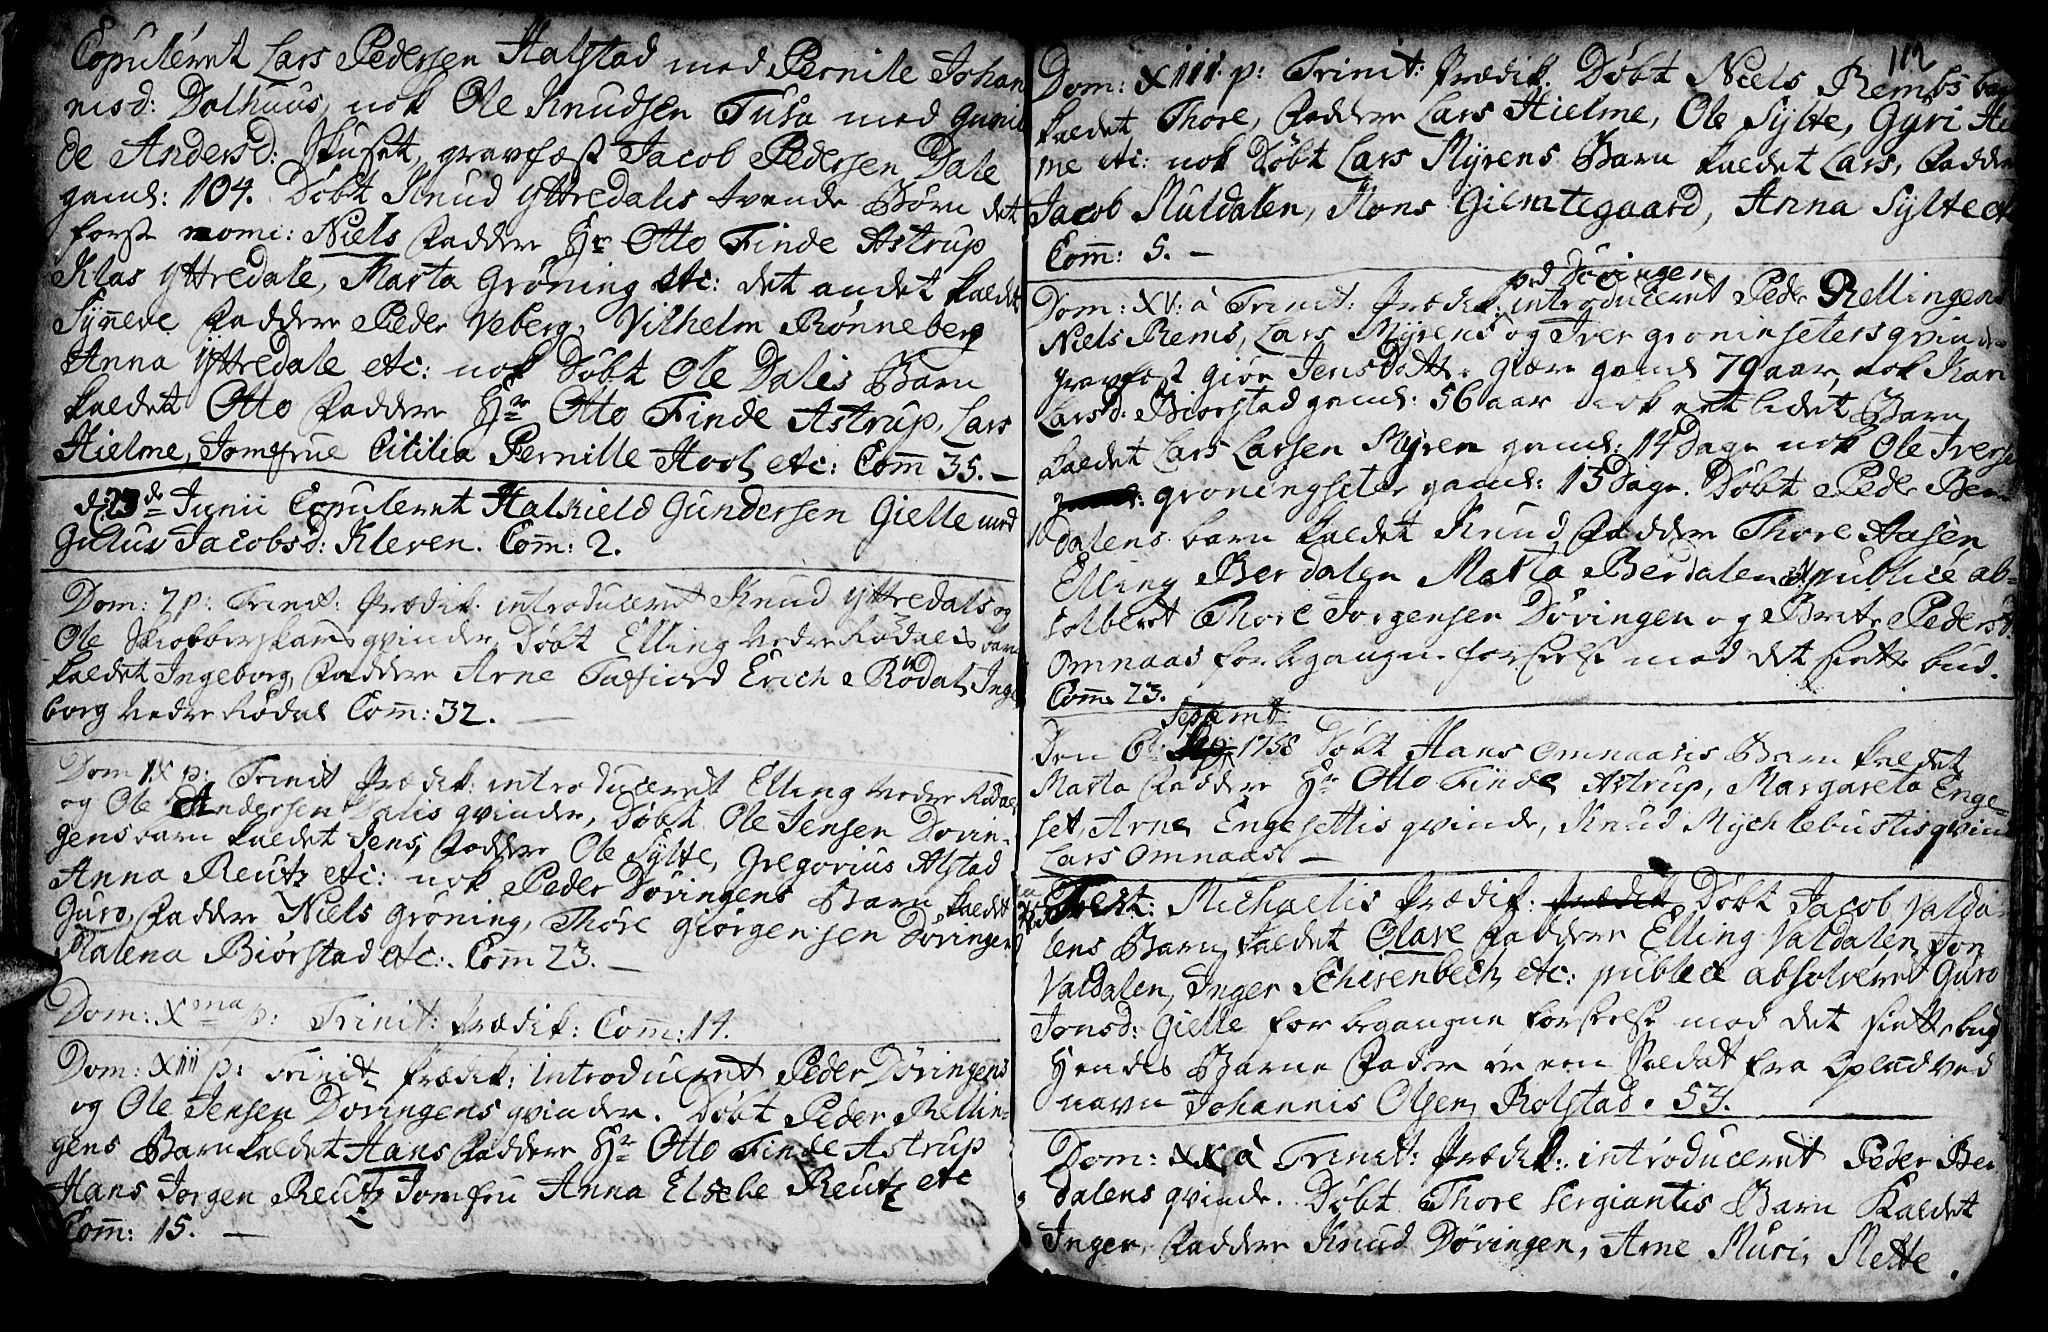 Copuleret Lars Pedersen Halstad med Pernile Johan
nisd: Dalhuus, nok Ole Knudsen Tusa med Gunil
de Andersd: Skuset, gravfæst Jacob Pedersen Dale
gaml: 104. Døbt Knud Yttredalis tvende Børn det
første nomi: Niels Faddere Hr Otto Finde Astrup
Klas Yttredale, Marta Grøning etc: det andet kaldet
Synneve Faddere Peder Veberg, Vilhelm Rønneberg
Anna Yttredale etc: nok Døbt Ole Dalis Barn
kaldet Otto Faddere Hr Otto Finde Astrup, Lars
Hielme, Jomfrue Citilia Pernille Hools etc: Com 35. —
d: 23de Junii Copuleret Halkield Gundersen Gielle med
Guluv Jacobsd: Kleven. Com: 2.
Dom: 7 p: Trinit: Prædik: introduceret Knud Yttredals og
Ole gvinder, Døbt Elling Nedre Rødalis barn
kaldet Ingeborg, Faddere Arne Tafiord Erich Rødal, Inge
borg Nedre Rødal Com: 32. —
Dom IX p: Trinit Prædik: introduceret Elling Nedre Rødals
og Ole Andersen Dalis gvinder, Døbt Ole Jensen Døvin-
gens barn kaldet Jens, Faddere Ole Sylte, Gregorius Alstad
Anna Reutz etc: nok Peder Døvingens Barn kaldet
Guro, Faddere Niels Grøning, Thore Giørgensen Døvingen
Malena Biørstad etc:. Com 23. —
Dom: Xma p: Trinit: Prædik: Com: 14.
Dom: XIII p: Trinit: Prædik: introduceret Peder Døvingens
og Ole Jensen Døvingens gvinder. Døbt Peder Rellin-
gens Barn kaldet Hans Faddere Hr Otto Finde Astrup
Hans Jørgen Reutz Jomfru Anna Elsebe Reutz etc
Com: 15. —
112
Dom: XIIII. p: Trinit: Prædik. Døbt Niels Rembs barn
kaldet Thore, Faddere Lars Hielme, Ole Sylte, Gyri Hiel
me etc: nok Døbt Lars Myrens Barn kaldet Lars, Faddere
Jacob Muldalen, Mons Giemtegaard, Anna Sylte etc
Com: 5. —
ved Døvingen
Dom: XV: à Trinit: Prædik: introduceret Peder Rellingens
Niels Rems, Lars Myrens og Iver Groninseters gvinder
gravfæst Giør Jensdotter gaml 79 aar, nok Kari
Larsd: Biorstad gaml: 56 aar nok eet lidet Barn
kaldet Lars Larsen Myren gaml: 14 Dage nok Ole Iversen
Groningseter gaml: 13 Dage. Døbt Peder Ber
dalens barn kaldet Knud, Faddere Thore Aasen,
Elling Berdalen Marta Berdalen publice ab-
solveret Thore Jorgensen Døvingen og Brite Pedersd:
Omnaas for begangne forseelse mod det siette bud.
Com. 23.
Septemt
Den 6t 1758 Døbt Hans Omnaasis Barn kaldet
Marta Faddere Hr Otto Finde Astrup, Margareta Enge-
set, Arne Engesettis gvinde, Knud Mychlebustis gvinde
Lars Omnaas. —
Fest: Michaelis Prædik: Prædik Døbt Jacob Valda-
lens Barn, kaldet Olave Faddere Elling Valdalen, Jon
Valdalen, Inger Schisenbech etc: publice absolveret Guro
Jonsd: Gielle for begangne forseelse mod det siette bud
Hendes Barne Fader er een Soldat fra Opland ved
navn Johannis Olsen Rolstad. 53.
Dom: XX à Trinit: Prædik:. introduceret Peder Ber
dalens gvinde. Døbt Thore Sergiantis Barn Kaldet
Inger, Faddere Knud Døvingen, Arne Muri, Mette